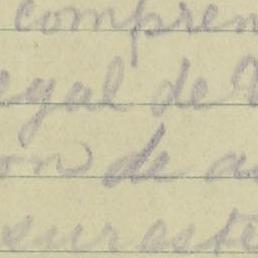 compren
egal de
on de a
sureste